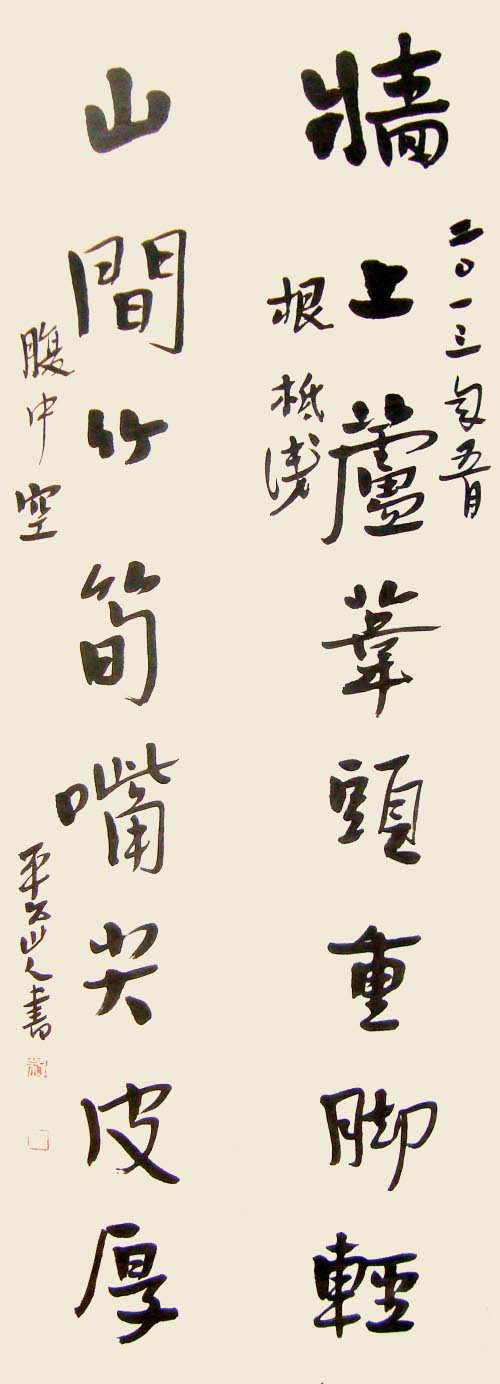 二〇一三年五月
牆上蘆葦頭重脚輕
根柢淺
山間竹筍嘴尖皮厚
腹中空
平公山人書